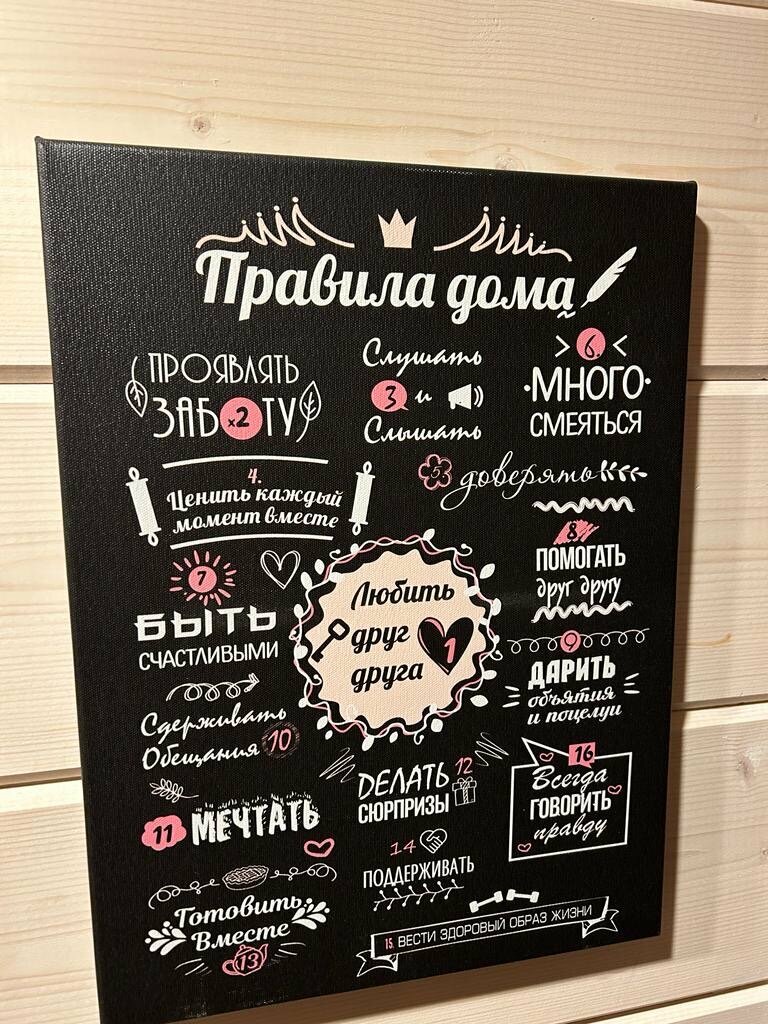 Правила дома
ПРОЯВЛЯТЬ
ЗАБОТУ
x2
Слушать
3 и
Слышать
6.
МНОГО
СМЕЯТЬСЯ
4.
Ценить каждый
момент вместе
5.
доверять
7
БЫТЬ
СЧАСТЛИВЫМИ
Любить
друг
друга
1
8
ПОМОГАТЬ
друг другу
9
ДАРИТЬ
объятия
и поцелуи
Сдерживать
Обещания 10
ДЕЛАТЬ 12
СЮРПРИЗЫ
16
Всегда
ГОВОРИТЬ
правду
11 МЕЧТАТЬ
14
ПОДДЕРЖИВАТЬ
Готовить
Вместе
13
15. ВЕСТИ ЗДОРОВЫЙ ОБРАЗ ЖИЗНИ